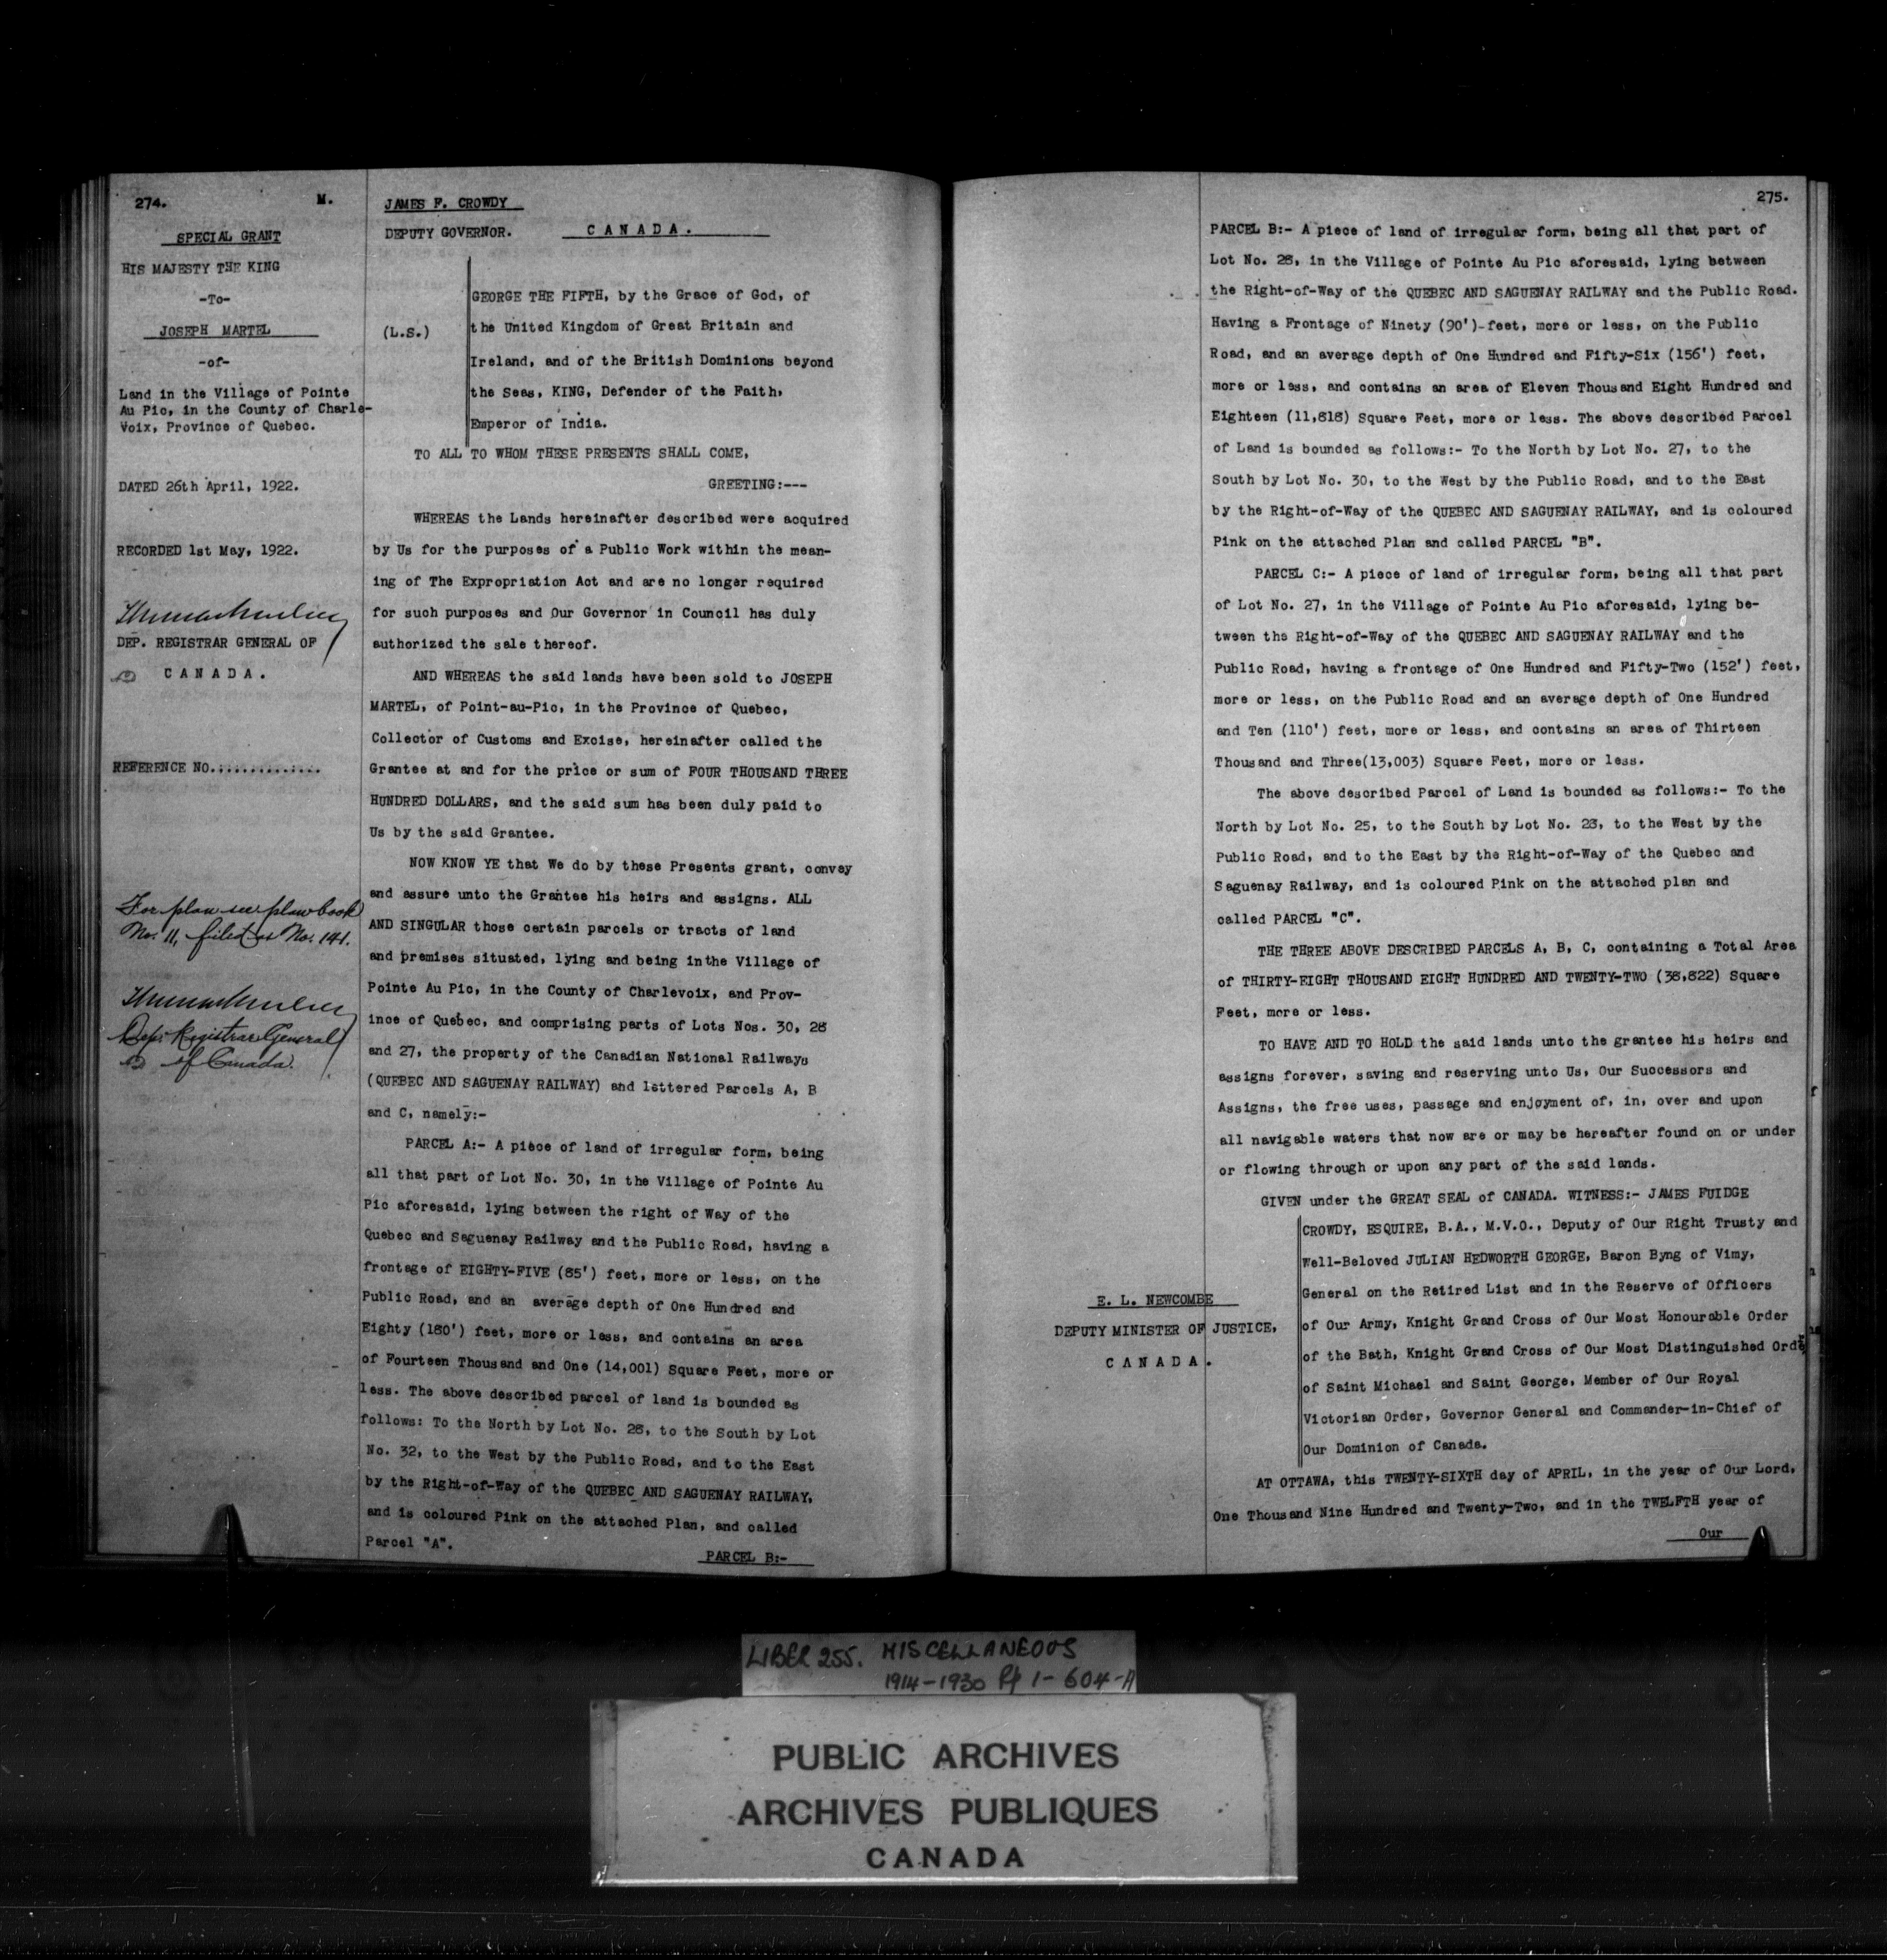 274.
M.
SPECIAL GRANT
HIS MAJESTY THE KING
-To-
JOSEPH MARTEL
-of-
Land in the Village of Pointe
Au Pic, in the County of Charle-
Voix, Province of Quebec.
DATED 26th April, 1922.
RECORDED 1st May, 1922.
DEP. REGISTRAR GENERAL OF
CANADA.
REFERENCE NO..............
For plan see plan book
No. 11, filed as No. 141.
Dep. Registrar General
of Canada.
JAMES F. CROWDY
DEPUTY GOVERNOR.
CANADA.
(L.S.)
GEORGE THE FIFTH, by the Grace of God, of
the United Kingdom of Great Britain and
Ireland, and of the British Dominions beyond
the Seas, KING, Defender of the Faith,
Emperor of India.
TO ALL TO WHOM THESE PRESENTS SHALL COME,
GREETING:---
WHEREAS the Lands hereinafter described were acquired
by Us for the purposes of a Public Work within the mean-
ing of The Expropriation Act and are no longer required
for such purposes and Our Governor in Council has duly
authorized the sale thereof.
AND WHEREAS the said lands have been sold to JOSEPH
MARTEL, of Point-au-Pic, in the Province of Quebec,
Collector of Customs and Excise, hereinafter called the
Grantee at and for the price or sum of FOUR THOUSAND THREE
HUNDRED DOLLARS, and the said sum has been duly paid to
Us by the said Grantee.
NOW KNOW YE that We do by these Presents grant, convey
and assure unto the Grantee his heirs and assigns. ALL
AND SINGULAR those certain parcels or tracts of land
and premises situated, lying and being inthe Village of
Pointe Au Pic, in the County of Charlevoix, and Prov-
ince of Quebec, and comprising parts of Lots Nos. 30, 28
and 27, the property of the Canadian National Railways
(QUEBEC AND SAGUENAY RAILWAY) and lettered Parcels A, B
and C, namely:-
PARCEL A:- A piece of land of irregular form, being
all that part of Lot No. 30, in the Village of Pointe Au
Pic aforesaid, lying between the right of Way of the
Quebec and Saguenay Railway and the Public Road, having a
frontage of EIGHTY-FIVE (85') feet, more or less, on the
Public Road, and an average depth of One Hundred and
Eighty (180') feet, more or less, and contains an area
of Fourteen Thousand and One (14,001) Square Feet, more or
less. The above described parcel of land is bounded as
follows: To the North by Lot No. 28, to the South by Lot
No. 32, to the West by the Public Road, and to the East
by the Right-of-Way of the QUEBEC AND SAGUENAY RAILWAY,
and is coloured Pink on the attached Plan, and called
Parcel "A".
PARCEL B:-
275.
PARCEL B:- A piece of land of irregular form, being all that part of
Lot No. 28, in the Village of Pointe Au Pic aforesaid, lying between
the Right-of-Way of the QUEBEC AND SAGUENAY RAILWAY and the Public Road.
Having a Frontage of Ninety (90')-feet, more or less, on the Public
Road, and an average depth of One Hundred and Fifty-Six (156') feet,
more or less, and contains an area of Eleven Thousand Eight Hundred and
Eighteen (11,818) Square Feet, more or less. The above described Parcel
of Land is bounded as follows:- To the North by Lot No. 27, to the
South by Lot No. 30, to the West by the Public Road, and to the East
by the Right-of-Way of the QUEBEC AND SAGUENAY RAILWAY, and is coloured
Pink on the attached Plan and called PARCEL "B".
PARCEL C:- A piece of land of irregular form, being all that part
of Lot No. 27, in the Village of Pointe Au Pic aforesaid, lying be-
tween the Right-of-Way of the QUEBEC AND SAGUENAY RAILWAY and the
Public Road, having a frontage of One Hundred and Fifty-Two (152') feet,
more or less, on the Public Road and an average depth of One Hundred
and Ten (110') feet, more or less, and contains an area of Thirteen
Thousand and Three(13,003) Square Feet, more or less.
The above described Parcel of Land is bounded as follows:- To the
North by Lot No. 25, to the South by Lot No. 28, to the West by the
Public Road, and to the East by the Right-of-Way of the Quebec and
Saguenay Railway, and is coloured Pink on the attached plan and
called PARCEL "C".
THE THREE ABOVE DESCRIBED PARCELS A, B, C, containing a Total Area
of THIRTY-EIGHT THOUSAND EIGHT HUNDRED AND TWENTY-TWO (38,822) Square
Feet, more or less.
TO HAVE AND TO HOLD the said lands unto the grantee his heirs and
assigns forever, saving and reserving unto Us, Our Successors and
Assigns, the free uses, passage and enjoyment of, in, over and upon
all navigable waters that now are or may be hereafter found on or under
or flowing through or upon any part of the said lands.
GIVEN under the GREAT SEAL of CANADA. WITNESS:- JAMES FUIDGE
CROWDY, ESQUIRE, B.A., M.V.O., Deputy of Our Right Trusty and
Well-Beloved JULIAN HEDWORTH GEORGE, Baron Byng of Vimy,
General on the Retired List and in the Reserve of Officers
of Our Army, Knight Grand Cross of Our Most Honourable Order
of the Bath, Knight Grand Cross of Our Most Distinguished Order
of Saint Michael and Saint George, Member of Our Royal
Victorian Order, Governor General and Commander-in-Chief of
Our Dominion of Canada.
E. L. NEWCOMBE
DEPUTY MINISTER OF JUSTICE,
CANADA.
AT OTTAWA, this TWENTY-SIXTH day of APRIL, in the year of Our Lord,
One Thousand Nine Hundred and Twenty-Two, and in the TWELFTH year of
Our
LIBER 255. MISCELLANEOUS
1914-1930 Pp 1-604-A
PUBLIC ARCHIVES
ARCHIVES PUBLIQUES
CANADA